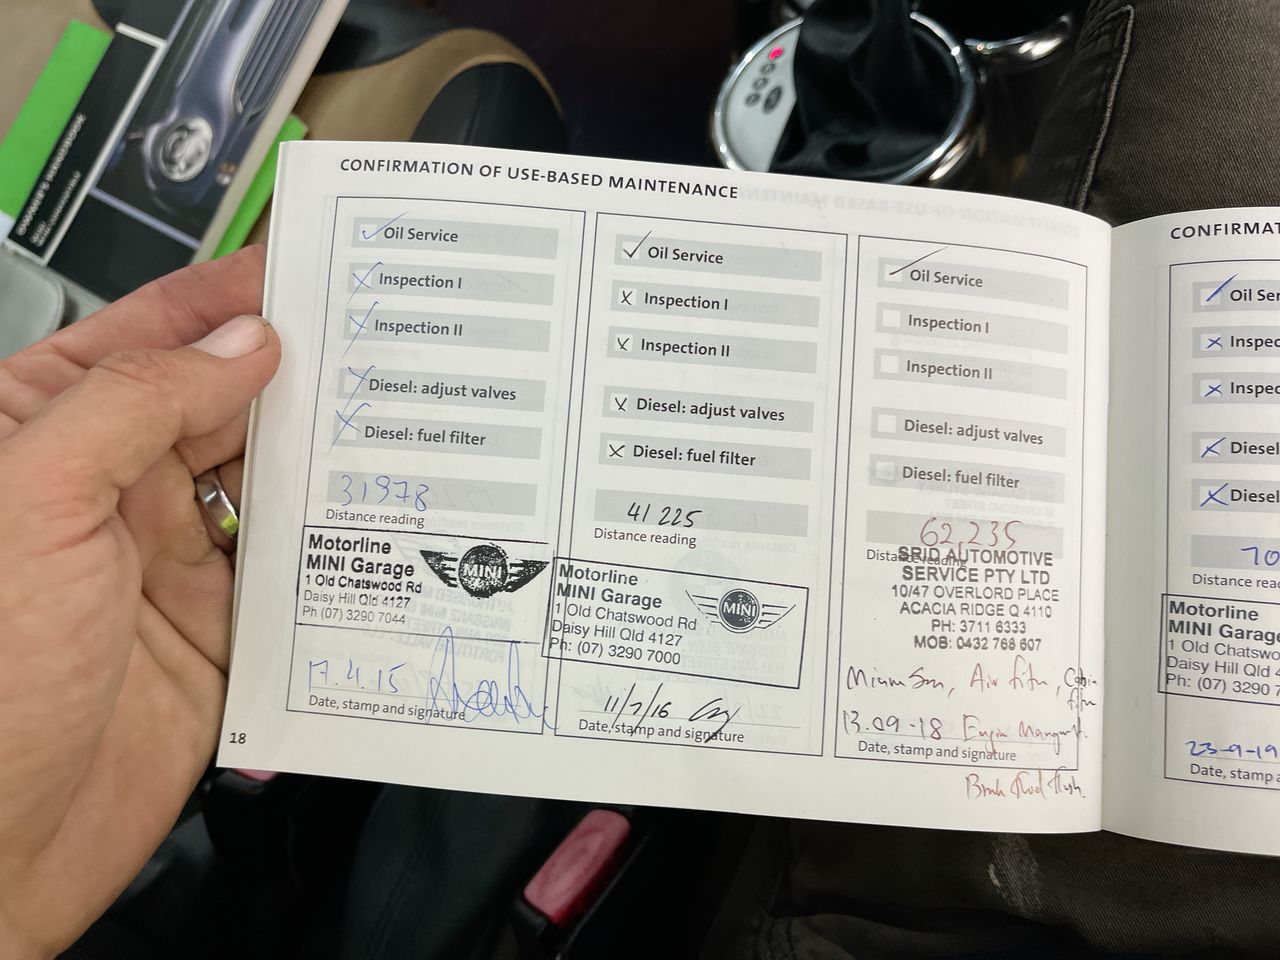 OWNER'S HANDBOOK
MINI
CONFIRMATION OF USE-BASED MAINTENANCE
Oil Service
Inspection I
Inspection II
Diesel: adjust valves
Diesel: fuel filter
31978
Distance reading
Motorline
MINI Garage
1 Old Chatswood Rd
Daisy Hill Qld 4127
Ph (07) 3290 7044
MINI
17.4.15
Date, stamp and signature
18
Oil Service
Inspection I
Inspection II
Diesel: adjust valves
Diesel: fuel filter
41 225
Distance reading
Motorline
MINI Garage
1 Old Chatswood Rd
Daisy Hill Qld 4127
Ph: (07) 3290 7000
MINI
11/7/16
Date, stamp and signature
Oil Service
Inspection I
Inspection II
Diesel: adjust valves
Diesel: fuel filter
62,235
Distance reading
SRID AUTOMOTIVE
SERVICE PTY LTD
10/47 OVERLORD PLACE
ACACIA RIDGE Q 4110
PH: 3711 6333
MOB: 0432 768 607
Air
13.09-18
Date, stamp and signature
CONFIRMAT
Oil Ser
Inspec
Inspec
Diesel
Diesel
70
Distance rea
Motorline
MINI Garage
1 Old Chatswood
Daisy Hill Qld 4
Ph: (07) 3290 7
23-9-19
Date, stamp a